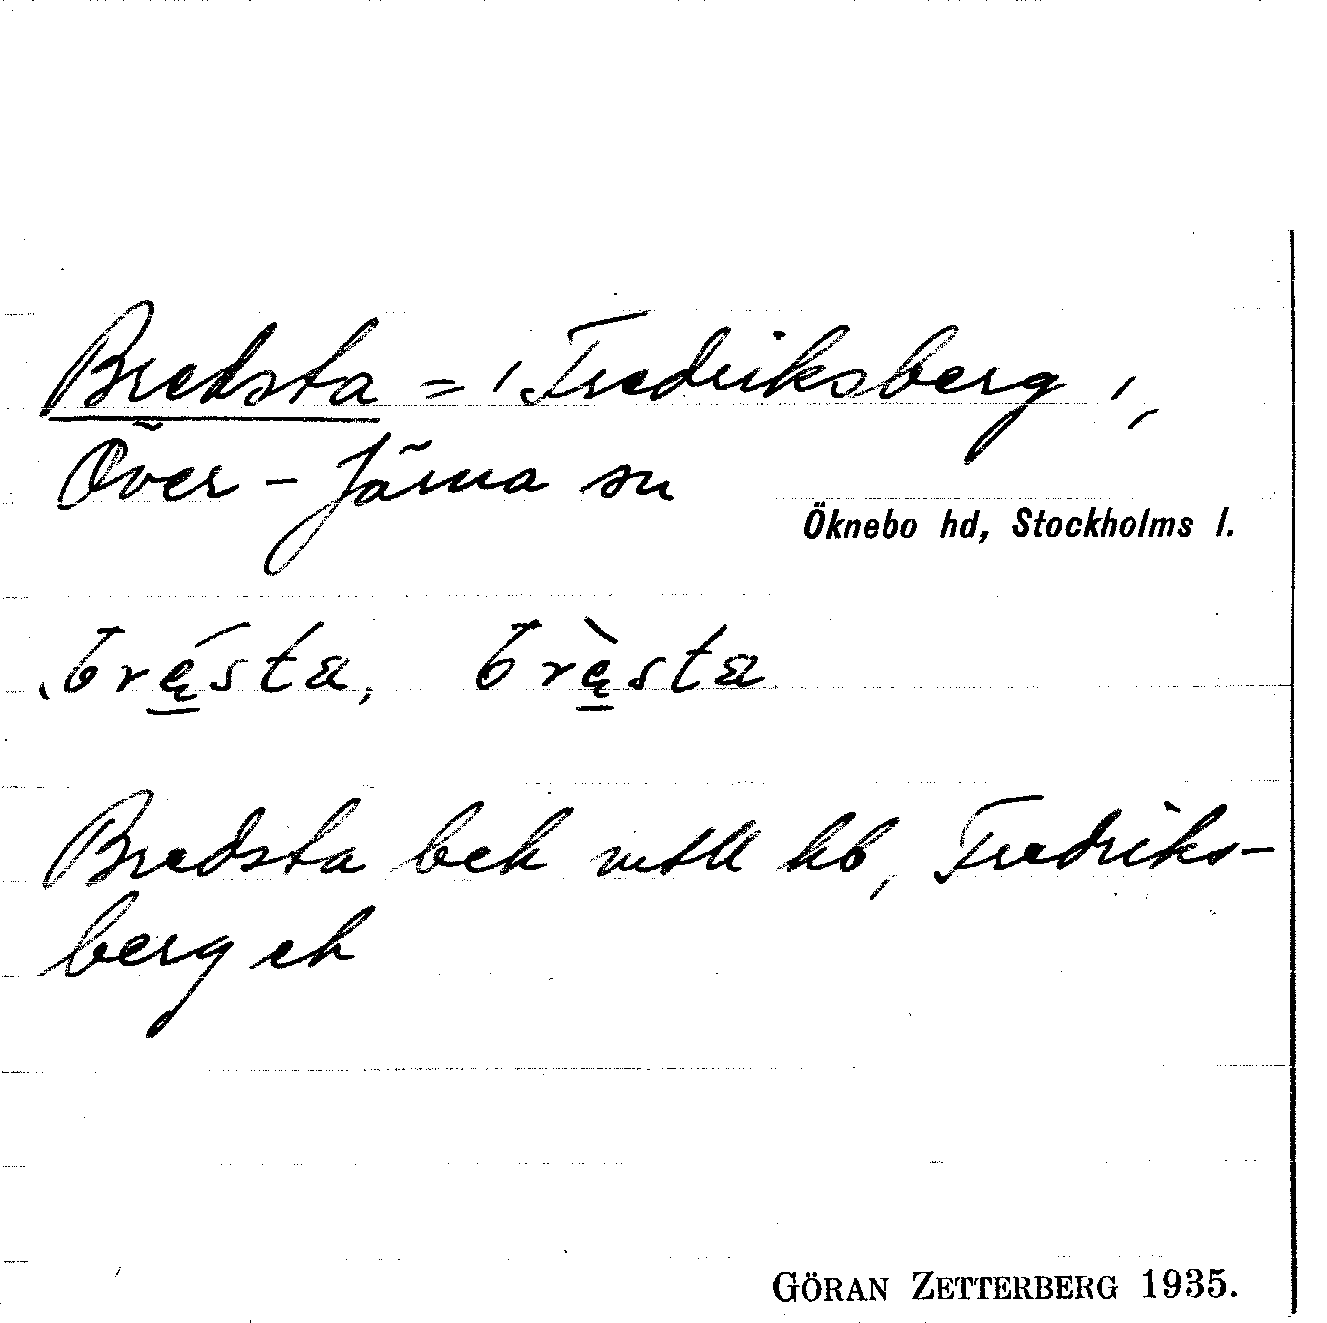 Bredsta = 'Fredriksberg',
Över-Järna sn
Öknebo hd, Stockholms l.
Bredsta bek mtll hb, Fredriks-
berg ek
GÖRAN ZETTERBERG 1935.